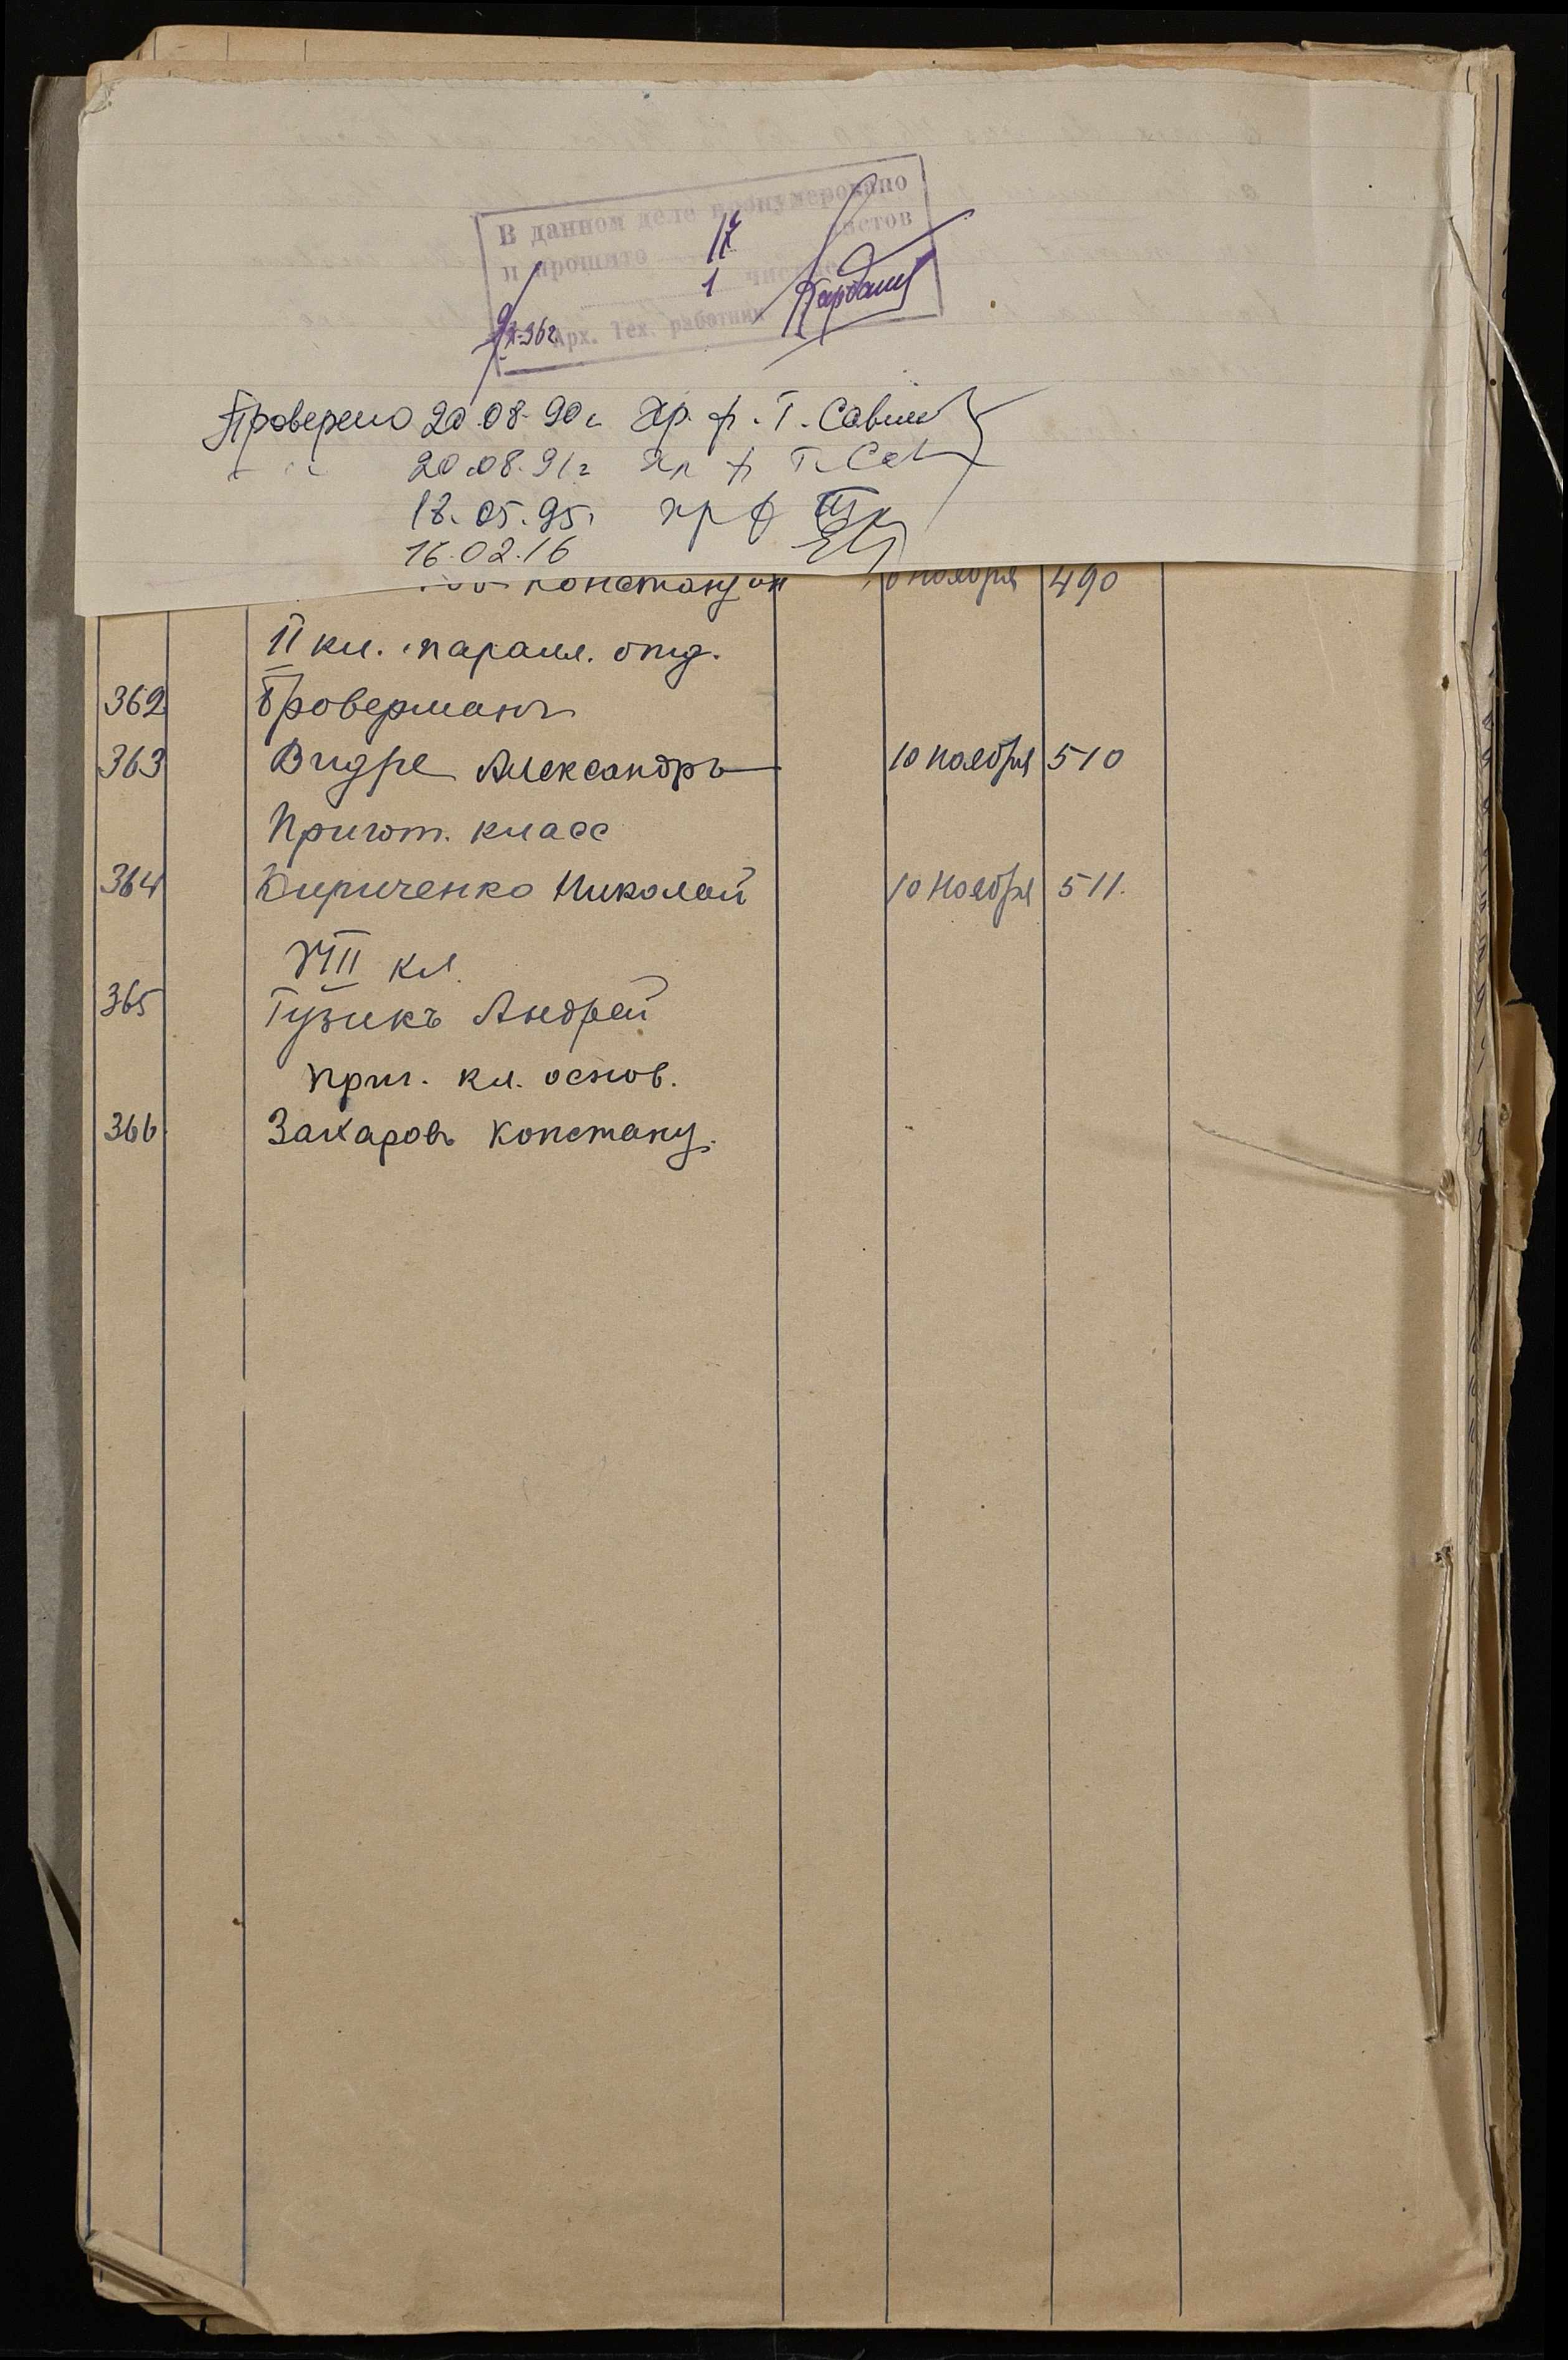 В данном деле пронумеровано
и прошито 17 листов
1 чист
Арх. Тех. работник
Проверено 20.08.90г Хр. ф. Т. Савин
20.08.91г Хр ф Т. Сав
18.05.95г хр ф
16.02.16
Констанцін ноября 490
II кл. паралл. отд.
362 Броверманъ
363 Видре Александръ 10 ноября 510
Пригот. класс
364 Кириченко Николай 10 ноября 511.
VIII кл.
365 Гузикъ Андрей
приг. кл. основ.
366 Захаровъ Констанц.